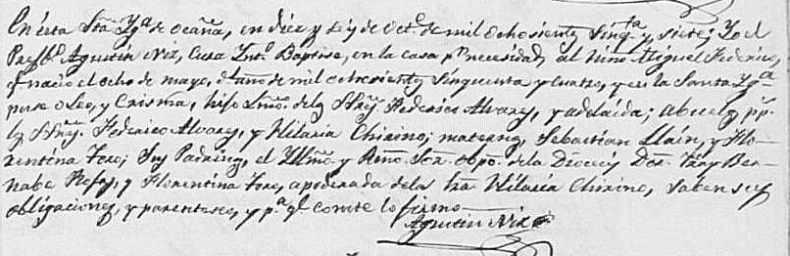 En esta Sta Yga de ocaña, en diez y seis de Octe de mil ochosientos sinqta y siete; Yo el
Presbo Agustin Niz, Cura Into Baptise, en la casa pr necesidad, al niño Miguel Federico,
q nacio el ocho de mayo, del año de mil ochosientos sinquenta y cuatro, y en la Santa Yga
puse oleo, y Crisma, hijo Lmo de los SSres Federico Alvarez, y adelaida; abuelos pps
los SSres Federico Alvarez, y Hilaria Chirino; maternos, Sebastian Llain, y Flo-
rentina Toro; Sus Padrinos, el Yllmo y Rmo Sor. obpo. de la Diocesis Dor. Fray Ber-
nabe Rojas, y Florentina Toro, apoderada de la Sra Hilaria Chirino, saben sus
obligaciones, y parentesco, y pa qe conste lo firmo
Agustin Niz